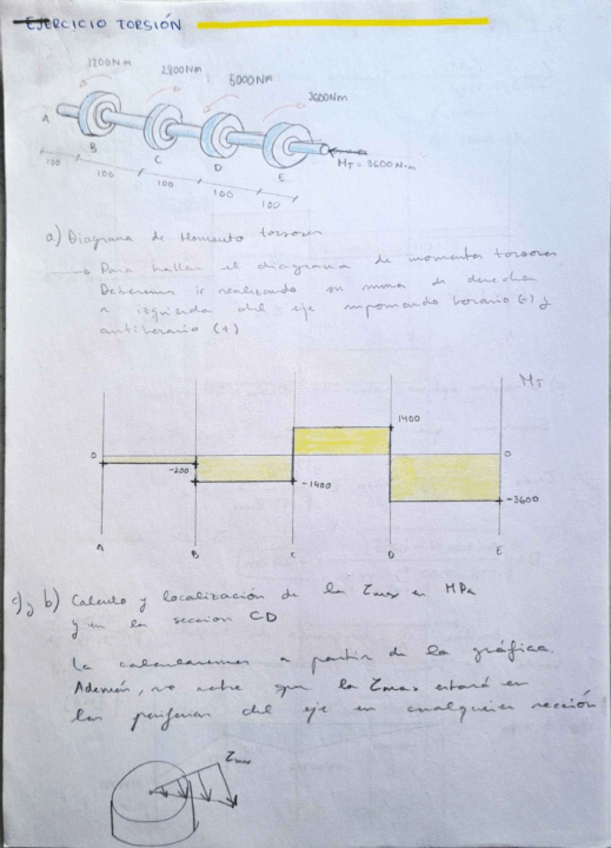 EJERCICIO TORSIÓN
1200Nm
2800Nm
5000Nm
3600Nm
A
B
C
D
E
MT = 3600 N·m
100
100
100
100
100
a) Diagrama de Momento torsores
→ Para hallar el diagrama de momentos torsores
Deberemos ir realizando su suma de derecha
a izquierda del eje suponiendo horario (-) y
antihorario (+)
MT
1400
0
0
-200
-1400
-3600
A
B
C
D
E
c) y b) Calculo y localización de la Zmax en MPa
y en la seccion CD
La calcularemos a partir de la gráfica.
Además, se que la Zmax estará en
las periferias del eje en cualquier sección
Zmax